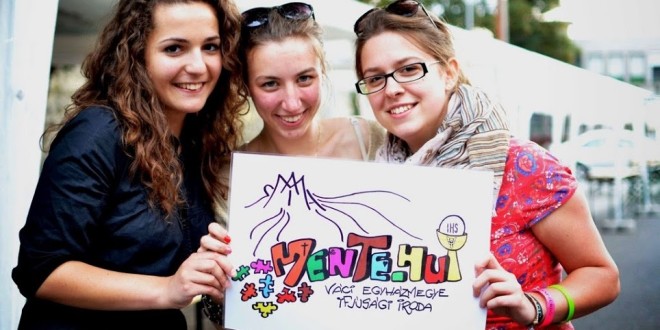 IHS
MENTE.HUI
VÁCI EGYHÁZMEGYE
IFJÚSÁGI IRODA